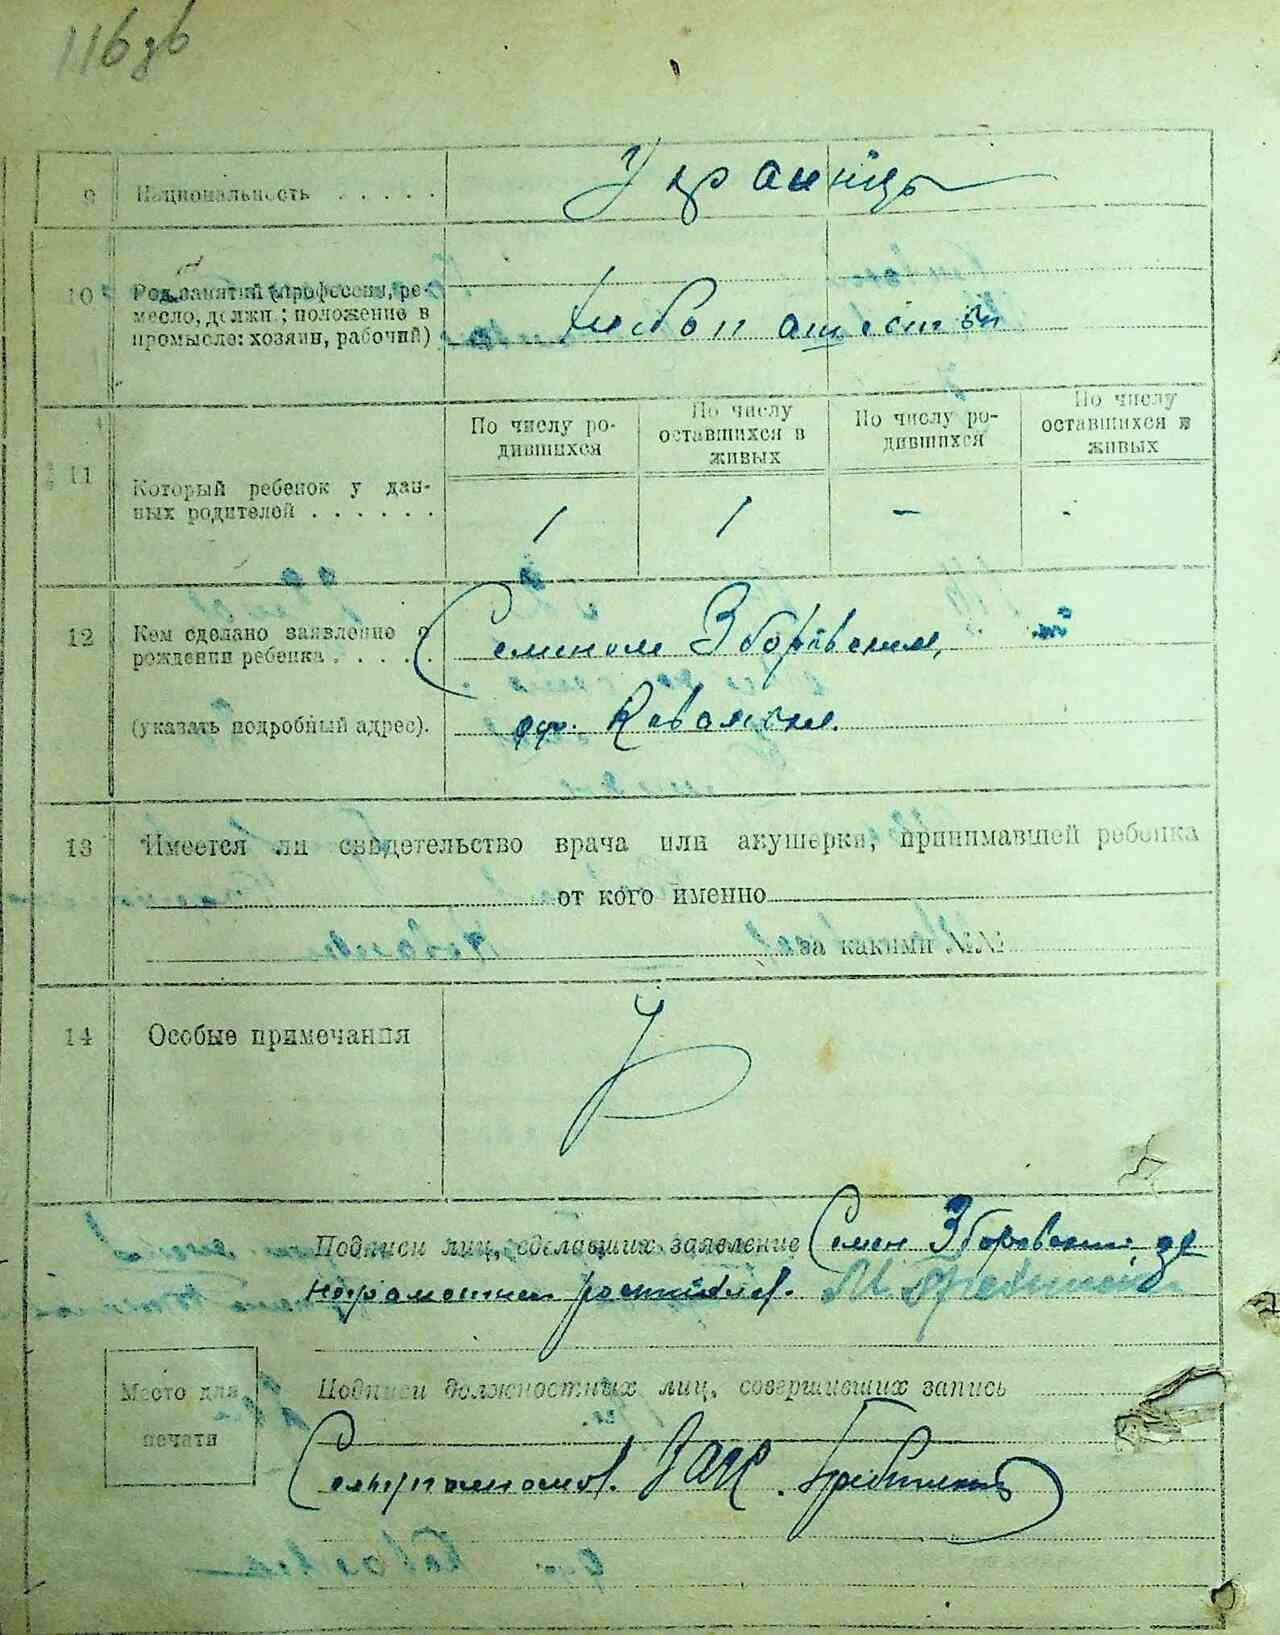 116 зв
9 Национальность . . . . . Українці
10 Род занятий (профессия, ре-
месло, должн.; положение в
промысле: хозяин, рабочий)
Хлебопашество
По числу ро-
дившихся
По числу
оставшихся в
живых
По числу ро-
дившихся
По числу
оставшихся в
живых
11 Который ребенок у дан-
ных родителей . . . . . .
1 1 - -
12 Кем сделано заявление о
рождении ребенка . . . . .
Семеном Зборовским,
(указать подробный адрес).
13 Имеется ли свидетельство врача или акушерки, принимавшей ребенка
от кого именно
за какими №№
14 Особые примечания
Подписи лиц, сделавших заявление Семен Зборовский, за
Место для
печати
Подписи должностных лиц, совершивших запись